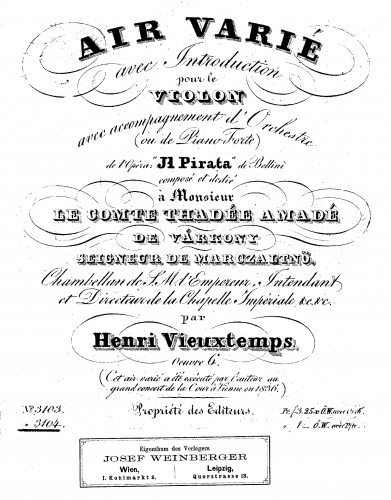 AIR VARIÉ
avec Introduction
pour le
VIOLON
avec accompagnement d'Orchestre
(ou de Piano Forte)
de l'Opéra: "Il Pirata" de Bellini
composé et dédié
à Monsieur
LE COMTE THADÉE AMADÉ
DE VÁRKONY
SEIGNEUR DE MARCZALTNÖ,
Chambellan de S.M. l'Empereur, Intendant
et Directeur de la Chapelle Impériale &c.&c.
par
Henri Vieuxtemps.
Oeuvre 6.
(Cet air varié a été exécuté par l'auteur au
grand concert de la Cour à Vienne en 1836.)
No. 3103.
" 3104.
Propriété des Editeurs.
Eigenthum des Verlegers
JOSEF WEINBERGER
Wien, Leipzig,
I. Kohlmarkt 8. Querstrasse 13.